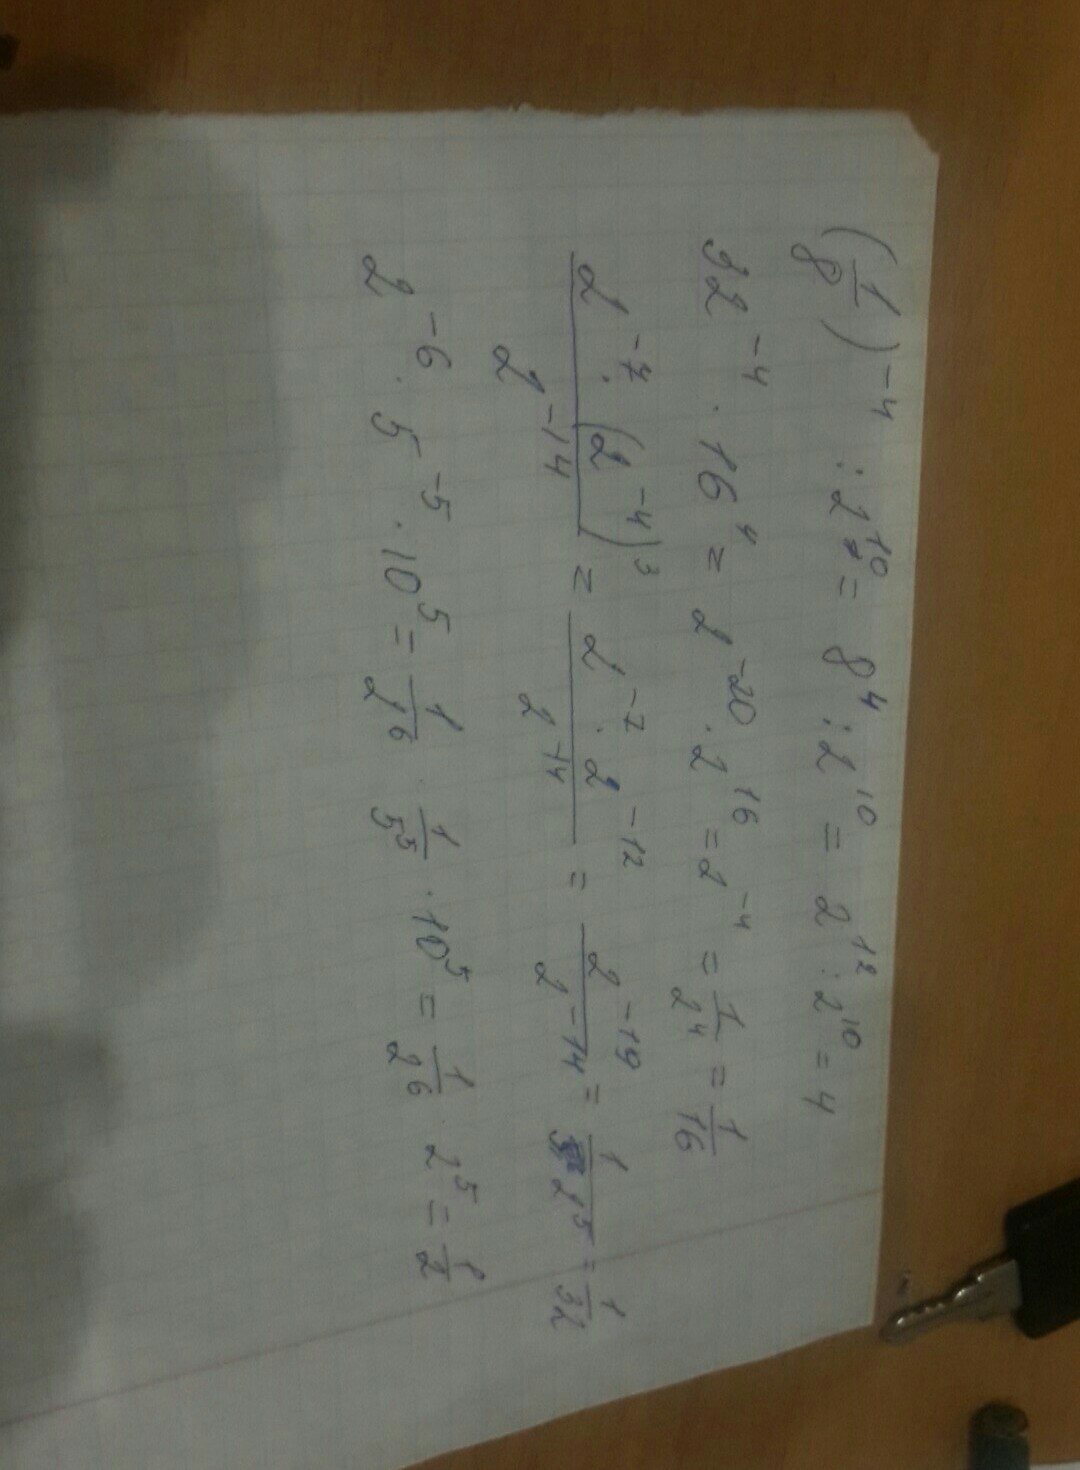 (1/8)^-4 : 2^10 = 8^4 : 2^10 = 2^12 : 2^10 = 4
32^-4 · 16^4 = 2^-20 · 2^16 = 2^-4 = 1/2^4 = 1/16
2^-7 · (2^-4)^3 / 2^-14 = 2^-7 · 2^-12 / 2^-14 = 2^-19 / 2^-14 = 1/2^5 = 1/32
2^-6 · 5^-5 · 10^5 = 1/2^6 · 1/5^5 · 10^5 = 1/2^6 · 2^5 = 1/2